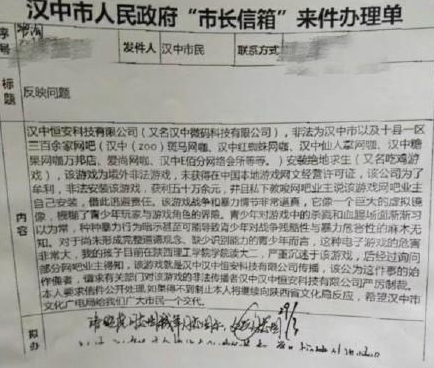 汉中市人民政府“市长信箱”来件办理单
序号
发件人 汉中市民 联系方式
标题 反映问题
汉中恒安科技有限公司（又名汉中微码科技有限公司），非法为汉中市以及十县一区
三百余家网吧（汉中（zoo）斑马网咖、汉中红蜘蛛网咖、汉中仙人掌网咖、汉中糖
果网咖万邦店、爱尚网咖、汉中E佰分网络会所等等。）安装绝地求生（又名吃鸡游
戏），该游戏为境外非法游戏，未获得在中国本地游戏网文经营许可证，该公司为了
牟利，非法安装该游戏，获利五十万余元，并且私下教唆网吧业主说该游戏网吧业主
自己安装，借此逃避责任。该游戏战争和暴力情节非常逼真，它像一个巨大的虚拟镜
像，模糊了青少年玩家与游戏角色的界限。青少年对游戏中的杀戮和血腥场面渐渐习
以为常，种种暴力行为暗示甚至可能导致青少年对战争残酷性与暴力危害性的麻木无
知。对于尚未形成完整道德观念、缺少识别能力的青少年而言，这种电子游戏的危害
非常大，我的孩子目前在陕西理工学院学院读大二，严重沉迷于该游戏，后经过询问
部分网吧业主得知，该游戏就是汉中汉中恒安科技有限公司传播，该公为这件事的始
作俑者，请求有关部门对该游戏的非法传播者汉中汉中恒安科技有限公司严厉制裁。
本人要求信件公开处理，如果得不到制止本人将继续向陕西省文化局反应，希望汉中市
文化广电局给我们广大市民一个交代。
内容
拟办